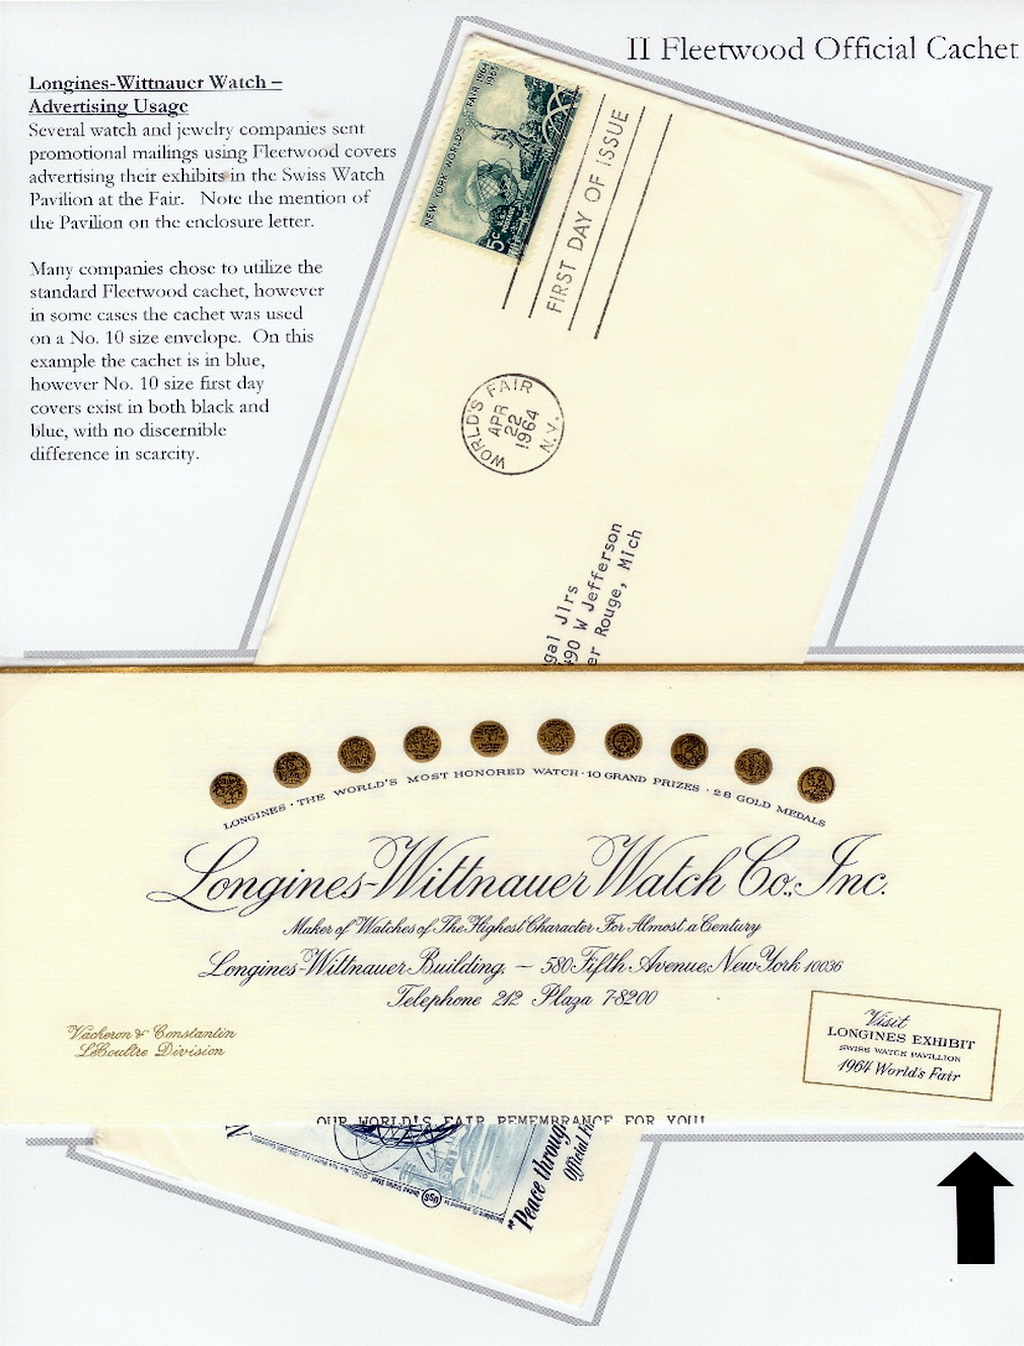 II Fleetwood Official Cachet
Longines-Wittnauer Watch –
Advertising Usage
Several watch and jewelry companies sent
promotional mailings using Fleetwood covers
advertising their exhibits in the Swiss Watch
Pavilion at the Fair. Note the mention of
the Pavilion on the enclosure letter.
Many companies chose to utilize the
standard Fleetwood cachet, however
in some cases the cachet was used
on a No. 10 size envelope. On this
example the cachet is in blue,
however No. 10 size first day
covers exist in both black and
blue, with no discernible
difference in scarcity.
NEW YORK WORLD'S FAIR 1964
1965
5c U.S.
POSTAGE
FIRST DAY OF ISSUE
WORLD'S FAIR
APR
22
1964
N.Y.
gal Jlrs
490 W Jefferson
er Rouge, Mich
LONGINES · THE WORLD'S MOST HONORED WATCH · 10 GRAND PRIZES · 28 GOLD MEDALS
Longines-Wittnauer Watch Co., Inc.
Maker of Watches of The Highest Character For Almost a Century
Longines-Wittnauer Building, – 580 Fifth Avenue, New York 10036
Telephone 212 Plaza 7-8200
Vacheron & Constantin
LeCoultre Division
Visit
LONGINES EXHIBIT
SWISS WATCH PAVILLION
1964 World's Fair
OUR WORLD'S FAIR REMEMBRANCE FOR YOU!
"Peace throug
Official
United States Steel
USS